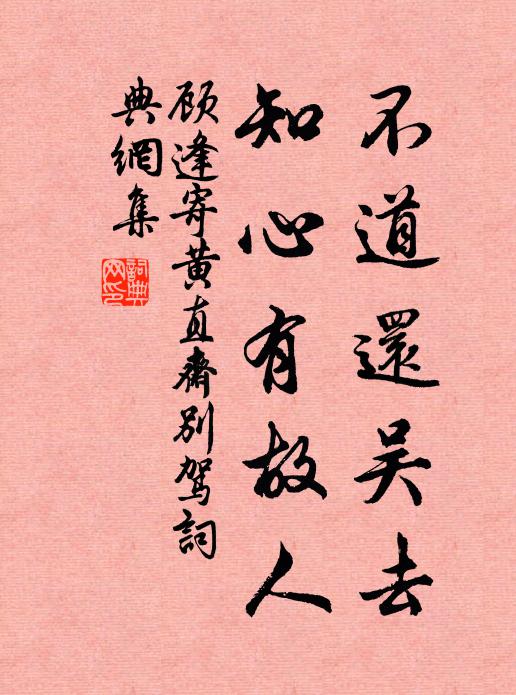 不道還吴去
知心有故人
顾逢寄黄直齋别驾詞
典網集
詞典
网印